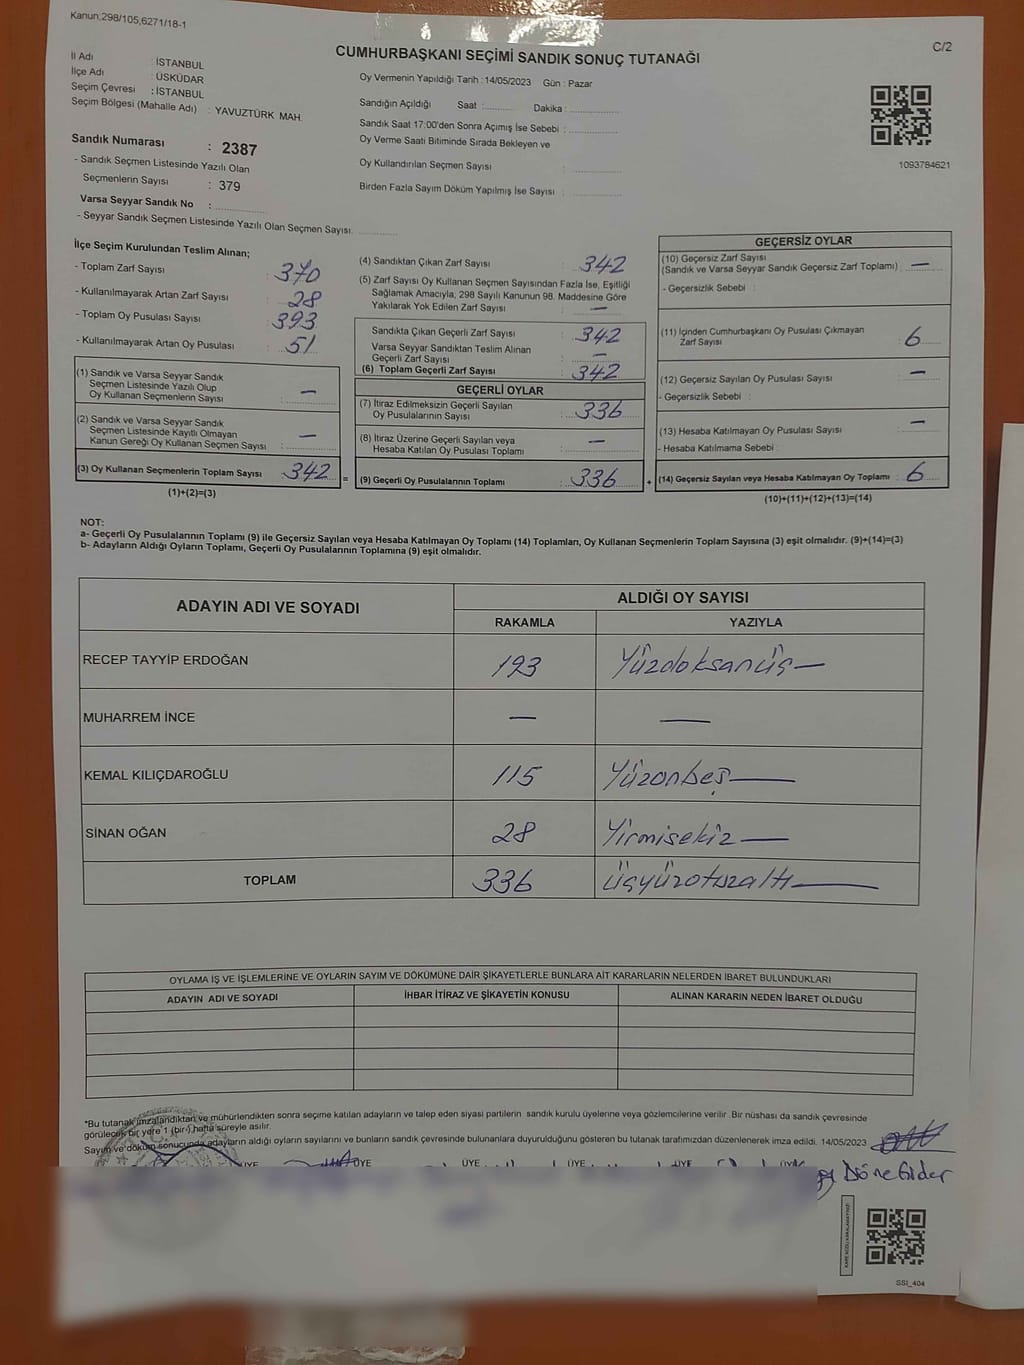 Kanun;298/105,6271/18-1
CUMHURBAŞKANI SEÇİMİ SANDIK SONUÇ TUTANAĞI
C/2
İl Adı : İSTANBUL
İlçe Adı : ÜSKÜDAR
Seçim Çevresi : İSTANBUL
Seçim Bölgesi (Mahalle Adı) : YAVUZTÜRK MAH.
Sandık Numarası : 2387
- Sandık Seçmen Listesinde Yazılı Olan
Seçmenlerin Sayısı : 379
Varsa Seyyar Sandık No :
- Seyyar Sandık Seçmen Listesinde Yazılı Olan Seçmen Sayısı:
Oy Vermenin Yapıldığı Tarih : 14/05/2023 Gün : Pazar
Sandığın Açıldığı Saat : Dakika :
Sandık Saat 17:00'den Sonra Açımış İse Sebebi :
Oy Verme Saati Bitiminde Sırada Bekleyen ve
Oy Kullandırılan Seçmen Sayısı :
Birden Fazla Sayım Döküm Yapılmış İse Sayısı :
1093784621
İlçe Seçim Kurulundan Teslim Alınan;
- Toplam Zarf Sayısı : 370
- Kullanılmayarak Artan Zarf Sayısı : 28
- Toplam Oy Pusulası Sayısı : 393
- Kullanılmayarak Artan Oy Pusulası : 51
(1) Sandık ve Varsa Seyyar Sandık
Seçmen Listesinde Yazılı Olup
Oy Kullanan Seçmenlerin Sayısı : —
(2) Sandık ve Varsa Seyyar Sandık
Seçmen Listesinde Kayıtlı Olmayan
Kanun Gereği Oy Kullanan Seçmen Sayısı : —
(3) Oy Kullanan Seçmenlerin Toplam Sayısı : 342 =
(1)+(2)=(3)
(4) Sandıktan Çıkan Zarf Sayısı : 342
(5) Zarf Sayısı Oy Kullanan Seçmen Sayısından Fazla İse, Eşitliği
Sağlamak Amacıyla, 298 Sayılı Kanunun 98. Maddesine Göre
Yakılarak Yok Edilen Zarf Sayısı : —
Sandıkta Çıkan Geçerli Zarf Sayısı : 342
Varsa Seyyar Sandıktan Teslim Alınan
Geçerli Zarf Sayısı : —
(6) Toplam Geçerli Zarf Sayısı : 342
GEÇERLİ OYLAR
(7) İtiraz Edilmeksizin Geçerli Sayılan
Oy Pusulalarının Sayısı : 336
(8) İtiraz Üzerine Geçerli Sayılan veya
Hesaba Katılan Oy Pusulası Toplamı : —
(9) Geçerli Oy Pusulalarının Toplamı : 336 +
GEÇERSİZ OYLAR
(10) Geçersiz Zarf Sayısı
(Sandık ve Varsa Seyyar Sandık Geçersiz Zarf Toplamı) : —
- Geçersizlik Sebebi :
(11) İçinden Cumhurbaşkanı Oy Pusulası Çıkmayan
Zarf Sayısı : 6
(12) Geçersiz Sayılan Oy Pusulası Sayısı : —
- Geçersizlik Sebebi :
(13) Hesaba Katılmayan Oy Pusulası Sayısı : —
- Hesaba Katılmama Sebebi :
(14) Geçersiz Sayılan veya Hesaba Katılmayan Oy Toplamı : 6
(10)+(11)+(12)+(13)=(14)
NOT:
a- Geçerli Oy Pusulalarının Toplamı (9) ile Geçersiz Sayılan veya Hesaba Katılmayan Oy Toplamı (14) Toplamları, Oy Kullanan Seçmenlerin Toplam Sayısına (3) eşit olmalıdır. (9)+(14)=(3)
b- Adayların Aldığı Oyların Toplamı, Geçerli Oy Pusulalarının Toplamına (9) eşit olmalıdır.
ADAYIN ADI VE SOYADI ALDIĞI OY SAYISI
RAKAMLA YAZIYLA
RECEP TAYYİP ERDOĞAN 193 Yüzdoksanüç—
MUHARREM İNCE — —
KEMAL KILIÇDAROĞLU 115 Yüzonbeş—
SİNAN OĞAN 28 Yirmisekiz—
TOPLAM 336 üçyüzotuzaltı—
OYLAMA İŞ VE İŞLEMLERİNE VE OYLARIN SAYIM VE DÖKÜMÜNE DAİR ŞİKAYETLERLE BUNLARA AİT KARARLARIN NELERDEN İBARET BULUNDUKLARI
ADAYIN ADI VE SOYADI İHBAR İTİRAZ VE ŞİKAYETİN KONUSU ALINAN KARARIN NEDEN İBARET OLDUĞU
*Bu tutanak imzalandıktan ve mühürlendikten sonra seçime katılan adayların ve talep eden siyasi partilerin sandık kurulu üyelerine veya gözlemcilerine verilir. Bir nüshası da sandık çevresinde
görülecek bir yere 1 (bir) hafta süreyle asılır.
Sayım ve döküm sonucunda adayların aldığı oyların sayılarını ve bunların sandık çevresinde bulunanlara duyurulduğunu gösteren bu tutanak tarafımızdan düzenlenerek imza edildi. 14/05/2023
ÜYE ÜYE ÜYE ÜYE ÜYE ÜYE
Döne Gider
SSI_404